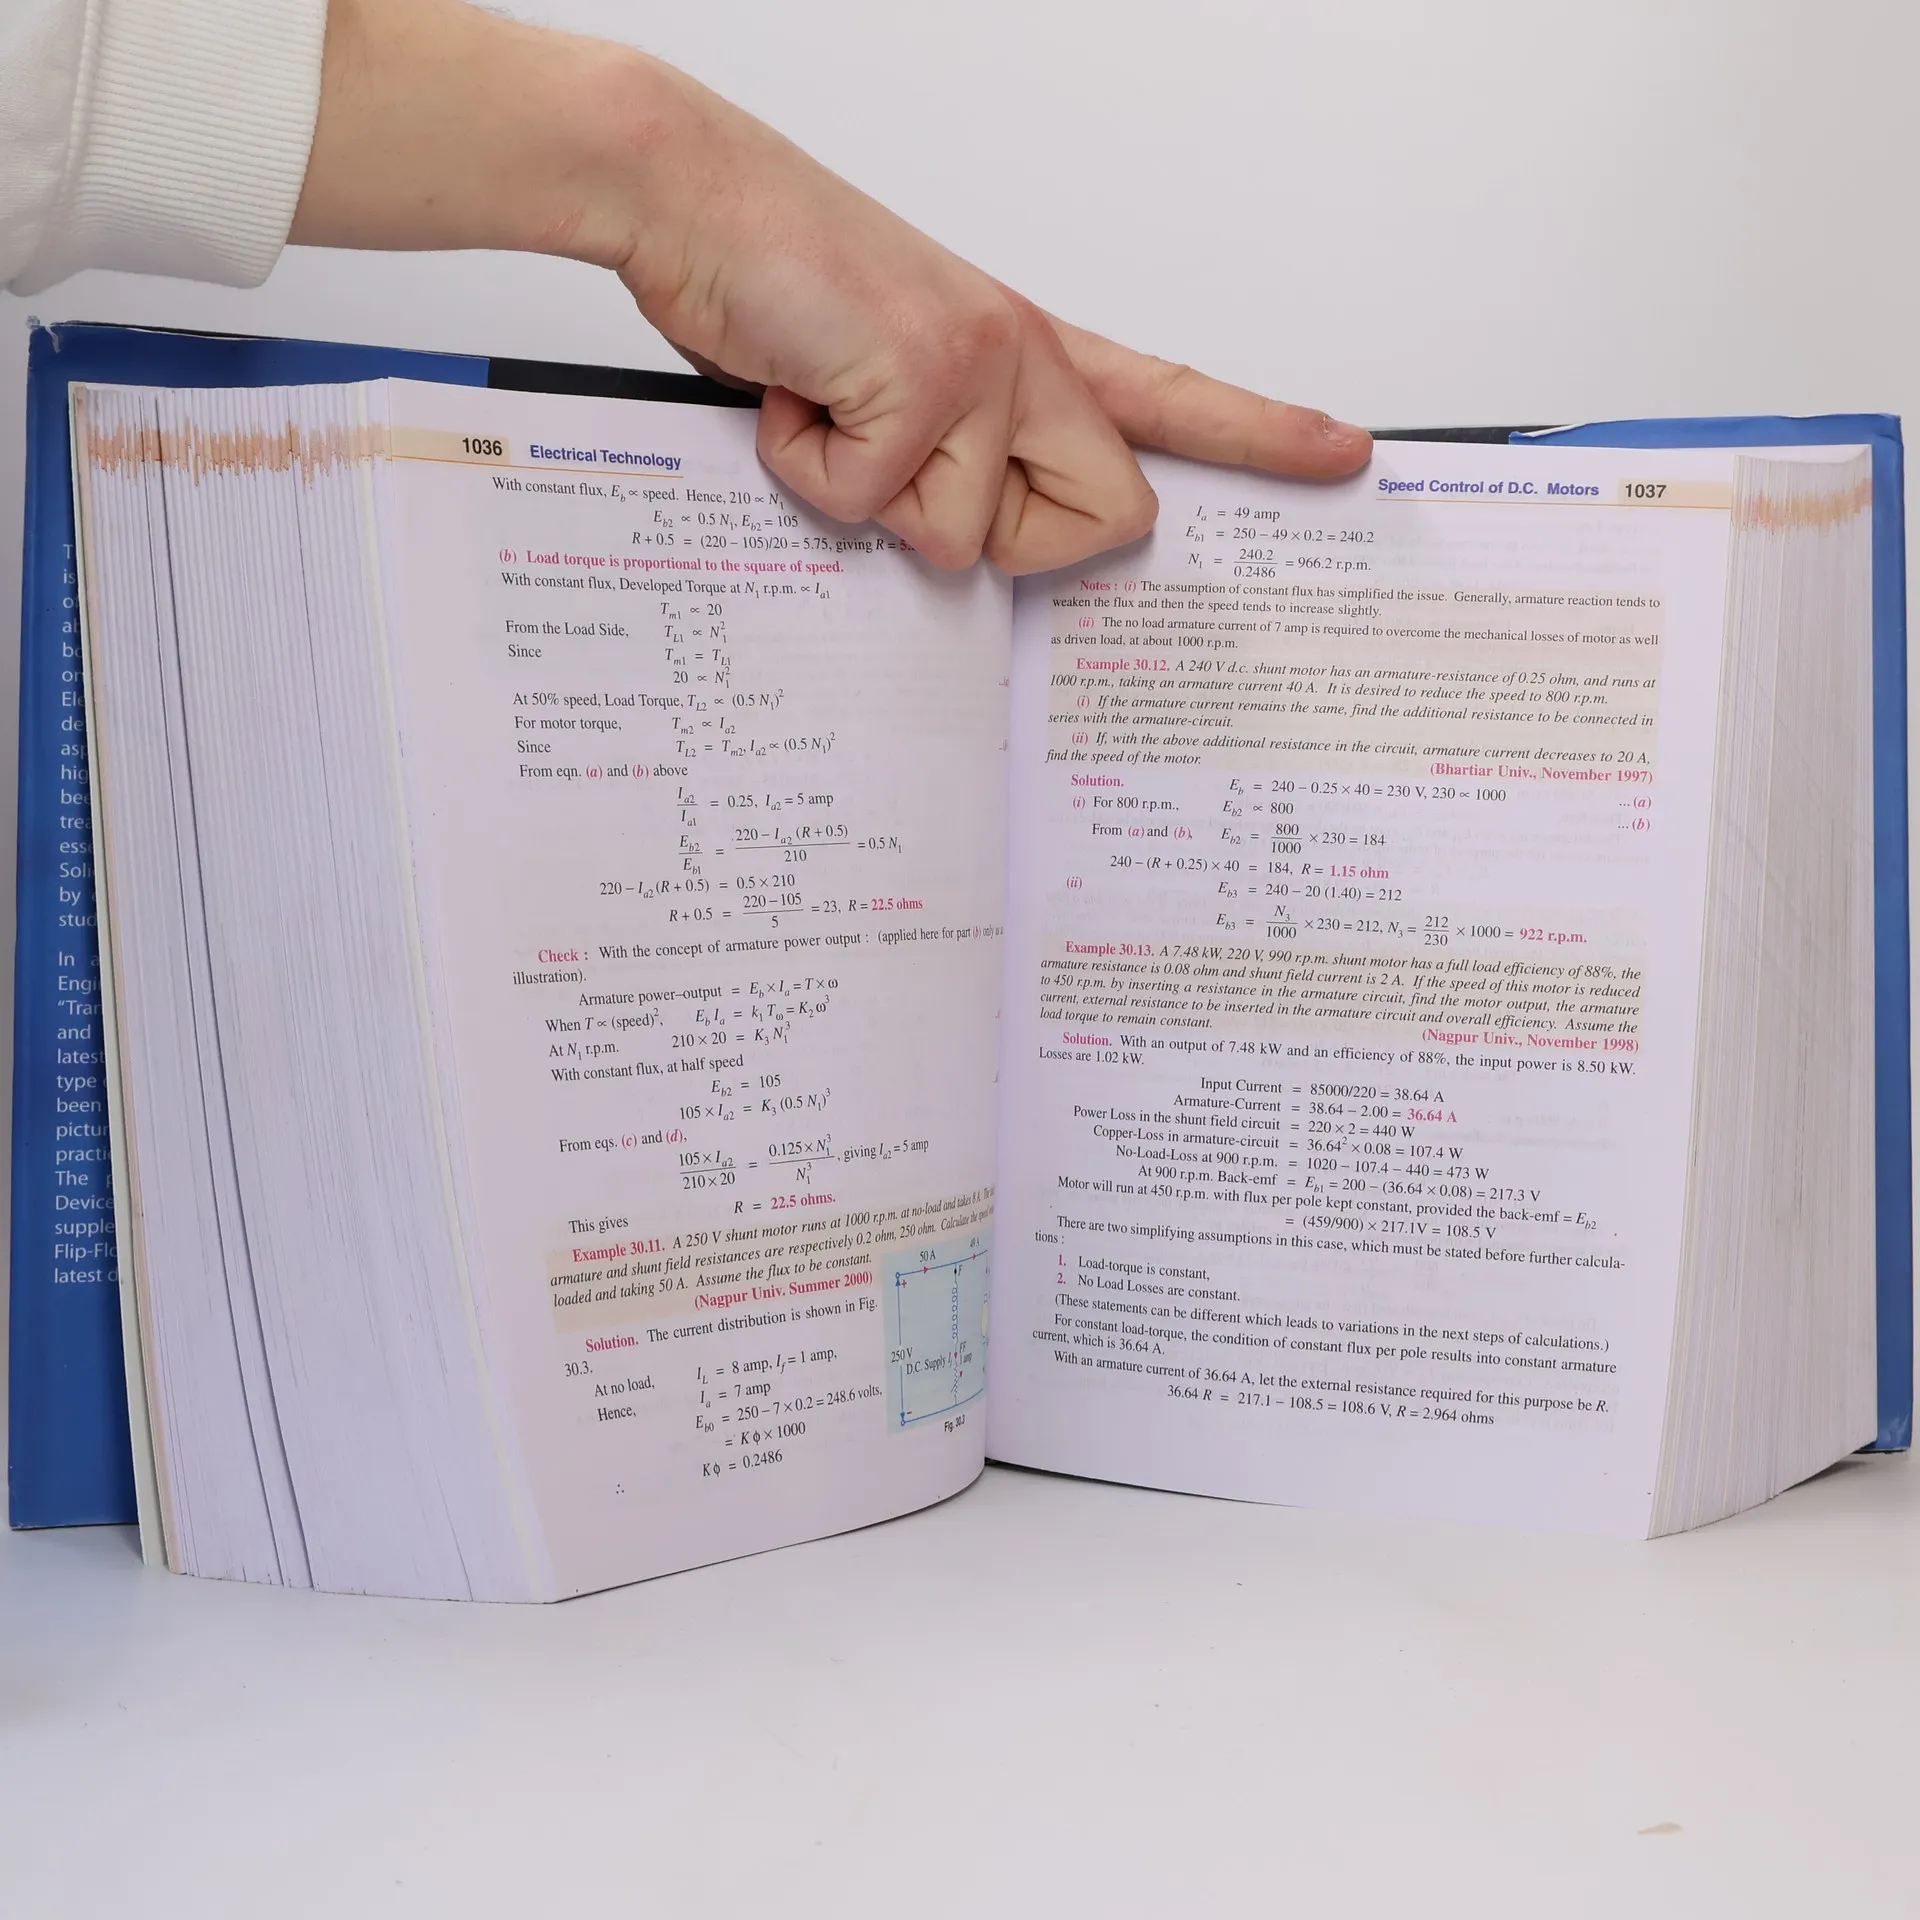 1036 Electrical Technology
With constant flux, E_b ∝ speed. Hence, 210 ∝ N_1
E_b2 ∝ 0.5 N_1, E_b2 = 105
R + 0.5 = (220 – 105)/20 = 5.75, giving R =
(b) Load torque is proportional to the square of speed.
With constant flux, Developed Torque at N_1 r.p.m. ∝ I_a1
T_m1 ∝ 20
From the Load Side, T_L1 ∝ N_1^2
Since T_m1 = T_L1
20 ∝ N_1^2
At 50% speed, Load Torque, T_L2 ∝ (0.5 N_1)^2
For motor torque, T_m2 ∝ I_a2
Since T_L2 = T_m2, I_a2 ∝ (0.5 N_1)^2
From eqn. (a) and (b) above
I_a2 / I_a1 = 0.25, I_a2 = 5 amp
E_b2 / E_b1 = 220 – I_a2 (R + 0.5) / 210 = 0.5 N_1
220 – I_a2 (R + 0.5) = 0.5 × 210
R + 0.5 = 220 – 105 / 5 = 23, R = 22.5 ohms
Check : With the concept of armature power output : (applied here for part (b) only as
illustration).
Armature power–output = E_b × I_a = T × ω
When T ∝ (speed)^2, E_b I_a = k_1 T_ω = K_2 ω^3
At N_1 r.p.m. 210 × 20 = K_3 N_1^3
With constant flux, at half speed
E_b2 = 105
105 × I_a2 = K_3 (0.5 N_1)^3
From eqs. (c) and (d),
105 × I_a2 / 210 × 20 = 0.125 × N_1^3 / N_1^3, giving I_a2 = 5 amp
This gives R = 22.5 ohms.
Example 30.11. A 250 V shunt motor runs at 1000 r.p.m. at no-load and takes 8 A. The
armature and shunt field resistances are respectively 0.2 ohm, 250 ohm. Calculate the speed
loaded and taking 50 A. Assume the flux to be constant.
(Nagpur Univ. Summer 2000)
Solution. The current distribution is shown in Fig.
30.3.
At no load, I_L = 8 amp, I_f = 1 amp,
Hence, I_a = 7 amp
E_b0 = 250 – 7 × 0.2 = 248.6 volts,
= K ϕ × 1000
∴ K ϕ = 0.2486
50 A
49 A
+
F
250 V
D.C. Supply
FF
1 amp
–
Fig. 30.3
Speed Control of D.C. Motors 1037
I_a = 49 amp
E_b1 = 250 – 49 × 0.2 = 240.2
N_1 = 240.2 / 0.2486 = 966.2 r.p.m.
Notes : (i) The assumption of constant flux has simplified the issue. Generally, armature reaction tends to
weaken the flux and then the speed tends to increase slightly.
(ii) The no load armature current of 7 amp is required to overcome the mechanical losses of motor as well
as driven load, at about 1000 r.p.m.
Example 30.12. A 240 V d.c. shunt motor has an armature-resistance of 0.25 ohm, and runs at
1000 r.p.m., taking an armature current 40 A. It is desired to reduce the speed to 800 r.p.m.
(i) If the armature current remains the same, find the additional resistance to be connected in
series with the armature-circuit.
(ii) If, with the above additional resistance in the circuit, armature current decreases to 20 A,
find the speed of the motor.
(Bhartiar Univ., November 1997)
Solution. E_b = 240 – 0.25 × 40 = 230 V, 230 ∝ 1000 ... (a)
(i) For 800 r.p.m., E_b2 ∝ 800 ... (b)
From (a) and (b), E_b2 = 800 / 1000 × 230 = 184
240 – (R + 0.25) × 40 = 184, R = 1.15 ohm
(ii) E_b3 = 240 – 20 (1.40) = 212
E_b3 = N_3 / 1000 × 230 = 212, N_3 = 212 / 230 × 1000 = 922 r.p.m.
Example 30.13. A 7.48 kW, 220 V, 990 r.p.m. shunt motor has a full load efficiency of 88%, the
armature resistance is 0.08 ohm and shunt field current is 2 A. If the speed of this motor is reduced
to 450 r.p.m. by inserting a resistance in the armature circuit, find the motor output, the armature
current, external resistance to be inserted in the armature circuit and overall efficiency. Assume the
load torque to remain constant.
(Nagpur Univ., November 1998)
Solution. With an output of 7.48 kW and an efficiency of 88%, the input power is 8.50 kW.
Losses are 1.02 kW.
Input Current = 85000/220 = 38.64 A
Armature-Current = 38.64 – 2.00 = 36.64 A
Power Loss in the shunt field circuit = 220 × 2 = 440 W
Copper-Loss in armature-circuit = 36.64^2 × 0.08 = 107.4 W
No-Load-Loss at 900 r.p.m. = 1020 – 107.4 – 440 = 473 W
At 900 r.p.m. Back-emf = E_b1 = 200 – (36.64 × 0.08) = 217.3 V
Motor will run at 450 r.p.m. with flux per pole kept constant, provided the back-emf = E_b2
= (459/900) × 217.1V = 108.5 V
There are two simplifying assumptions in this case, which must be stated before further calcula-
tions :
1. Load-torque is constant,
2. No Load Losses are constant.
(These statements can be different which leads to variations in the next steps of calculations.)
For constant load-torque, the condition of constant flux per pole results into constant armature
current, which is 36.64 A.
With an armature current of 36.64 A, let the external resistance required for this purpose be R.
36.64 R = 217.1 – 108.5 = 108.6 V, R = 2.964 ohms
In
and
latest
type
been
The
Flip-Flo
latest